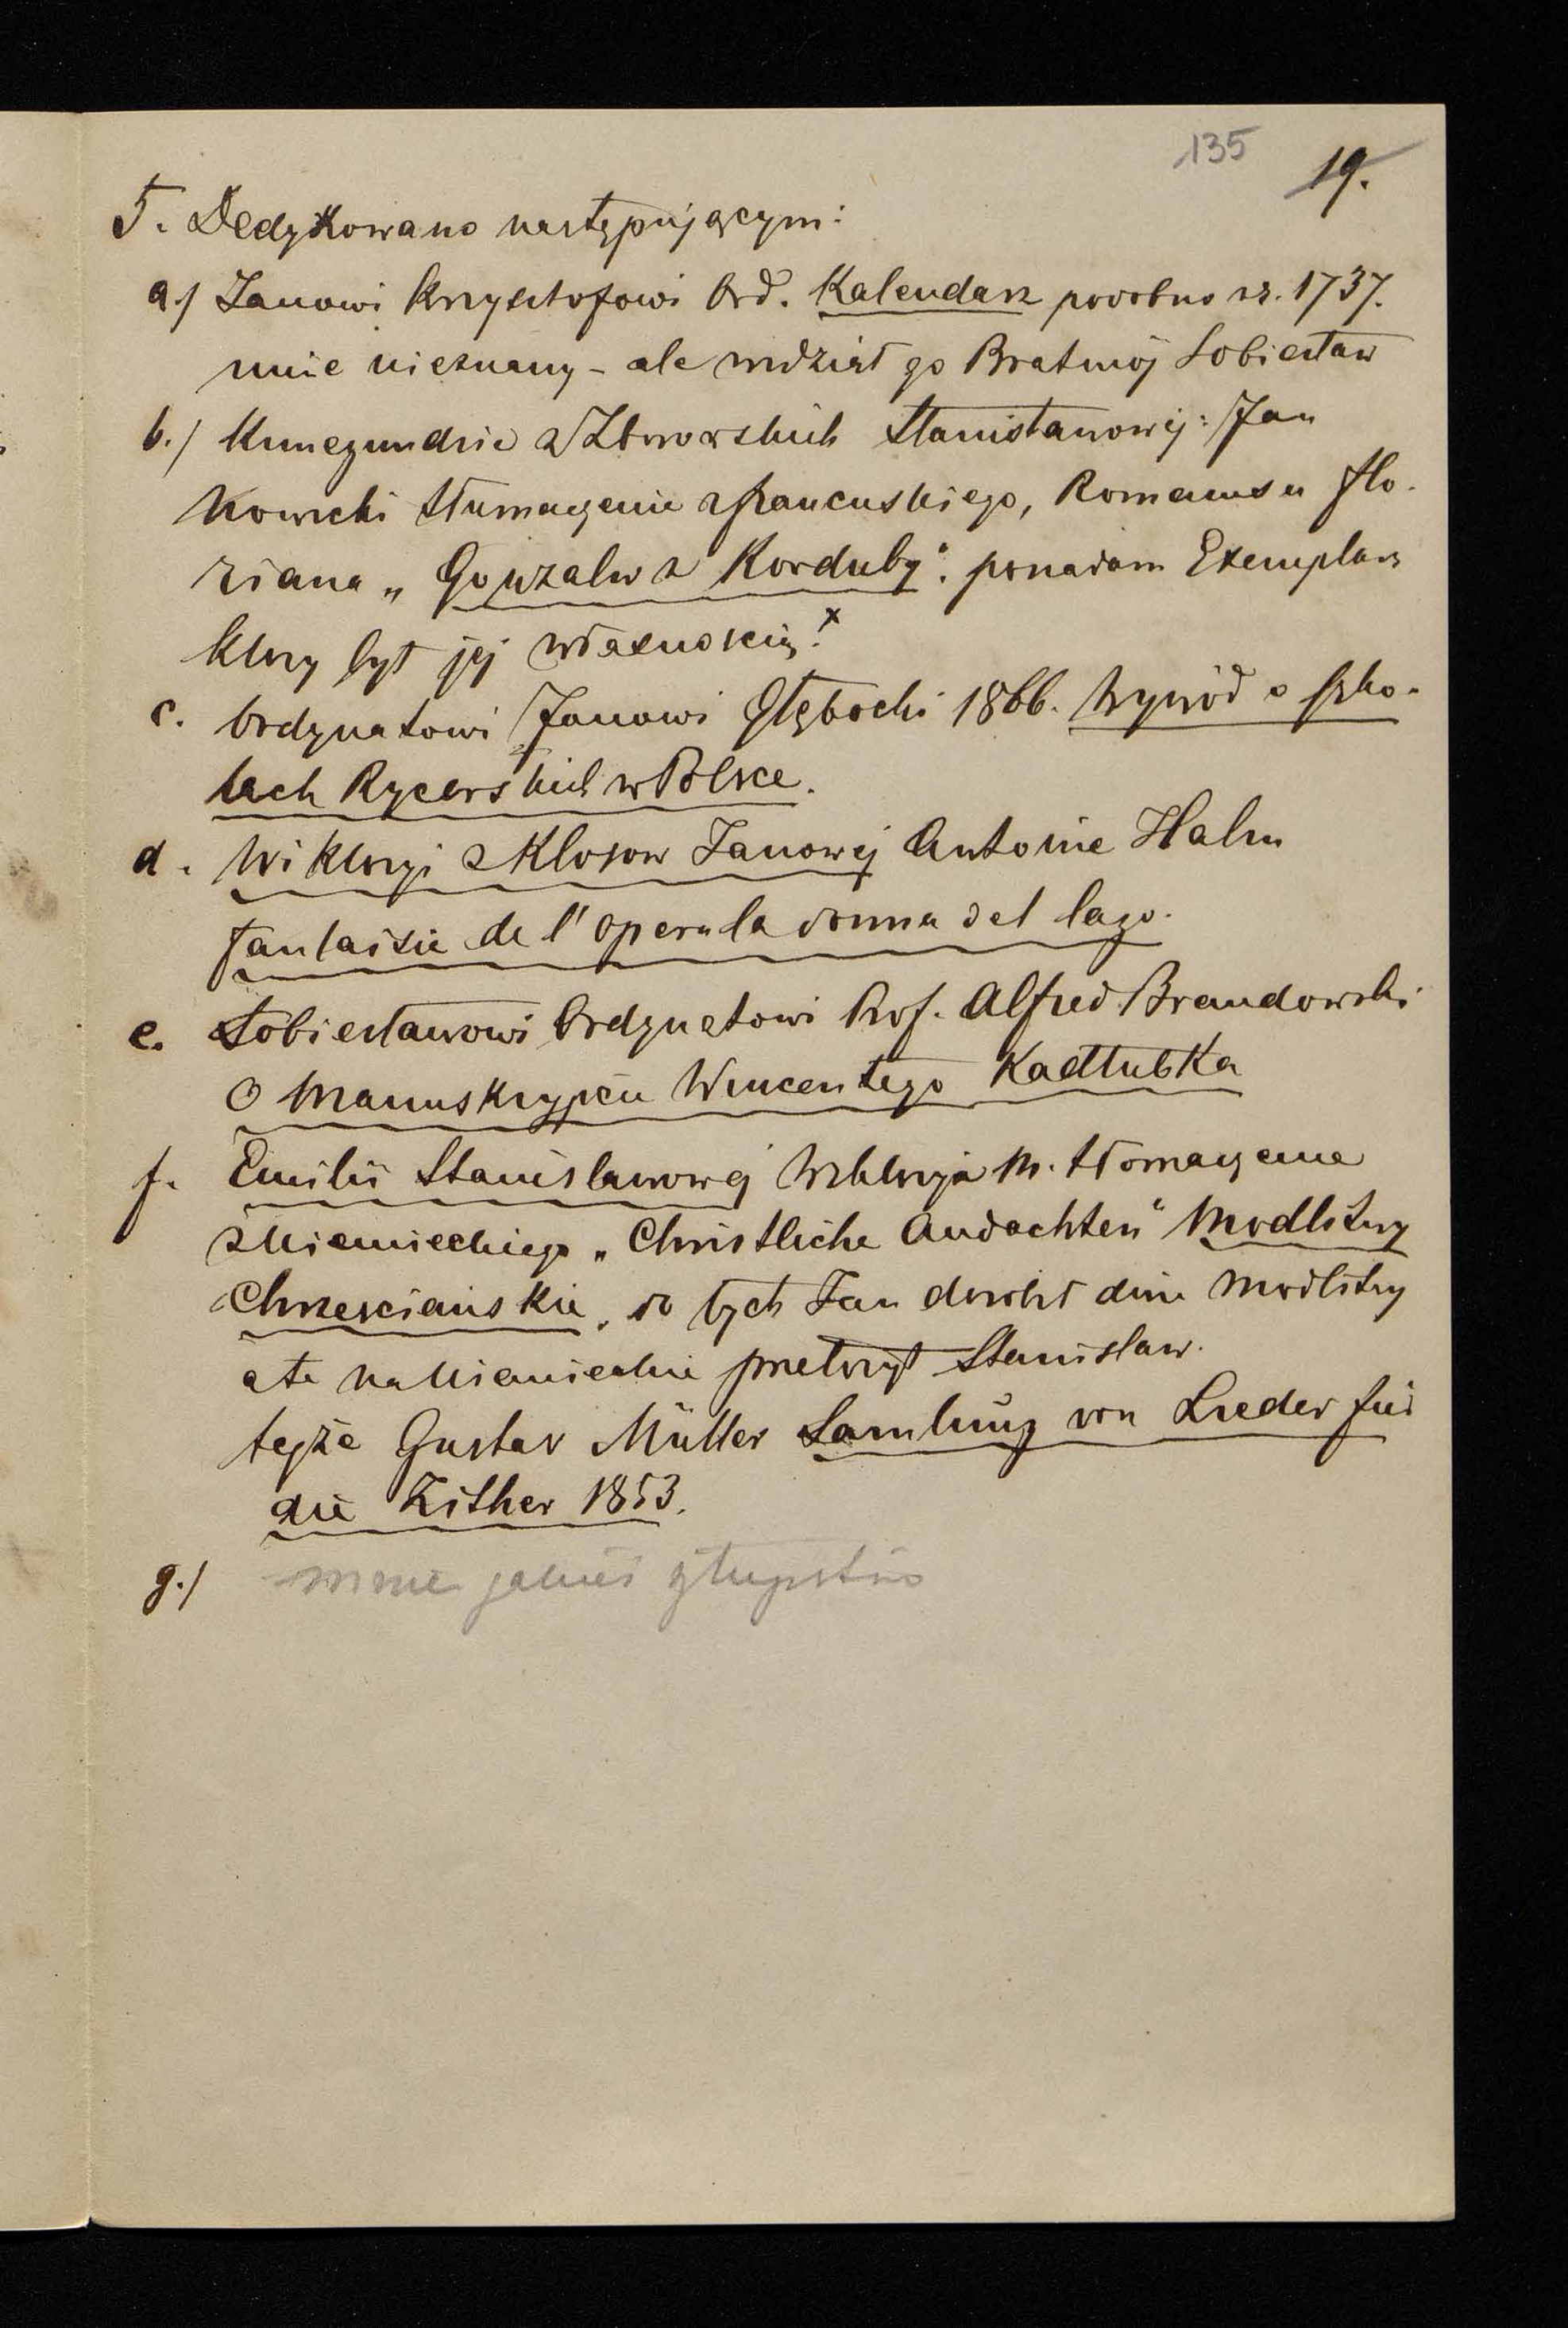 135 19.
5. Dedykowano następującym:
a./ Janowi Krzysztofowi Ord. Kalendarz podobno z r. 1737.
mnie nieznany – ale widział go Brat mój Sobiesław
b./ Kunegundzie z Zborowskich Stanisławowej: Jan
Nowicki tłumaczenie z francuskiego, Romansu Flo-
riana „Gonzalw z Korduby". posiadam Exemplarz
który był jej własnością. x
c. Ordynatowi Janowi Głębocki 1866. Wywód o szko-
łach Rycerskich w Polsce.
d. Wiktoryi z Klosow Janowej Antoine Halm
fantaisie de l'opera la donna del lago.
e. Sobiesławowi Ordynatowi Prof. Alfred Brandowski
O Manuskrypcie Wincentego Kadłubka
f. Emilii Stanislawowej Wiktorya M. tłomaczenie
z Niemieckiego „Christliche Andachten" Modlitwy
Chrzesciańskie, do tych Jan dorobił dwie modlitwy
a te na Niemieckie przełożył Stanislaw.
tejże Gustav Müller Samlung von Lieder für
die Zither 1853.
g./ mnie jakieś głupstwo